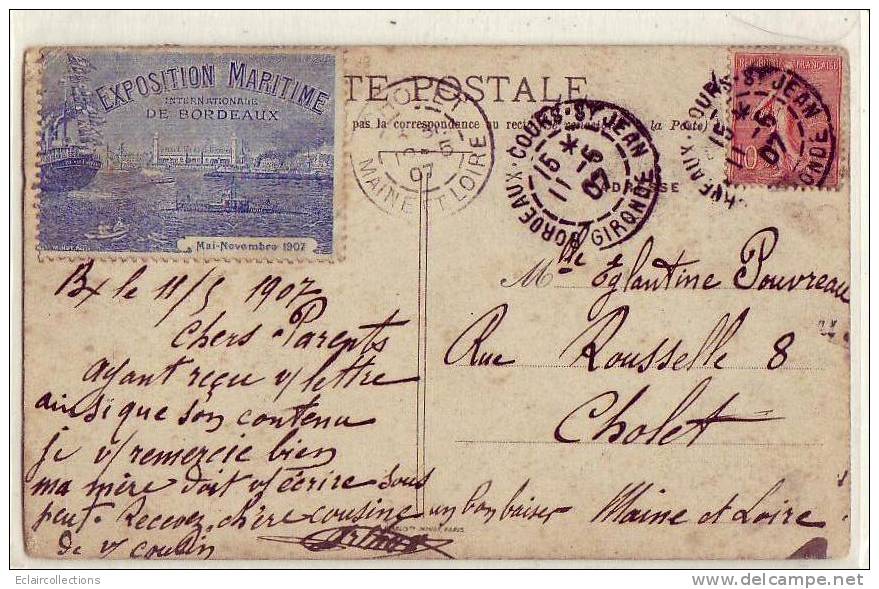 EXPOSITION MARITIME
INTERNATIONALE
DE BORDEAUX
Mai-Novembre 1907
TE POSTALE
pas la correspondance au
la Poste)
ADRESSE
MAINE ET LOIRE
07
BORDEAUX · COURS · ST JEAN
15 *
11 5
07
GIRONDE
REPUBLIQUE FRANÇAISE
COURS · ST JEAN
15 *
11 5
07
Bx le 11/5 1907
Chers Parents
Ayant reçu v/ lettre
ainsi que son contenu
je v/ remercie bien
ma mère doit v/ écrire sous
peu. Recevez chère cousine un bon baiser
de v/ cousin
Arthur
Mlle Eglantine Pouvreau
Rue Rousselle 8
Cholet
Maine et Loire
Eclaircollections
www.delcampe.net